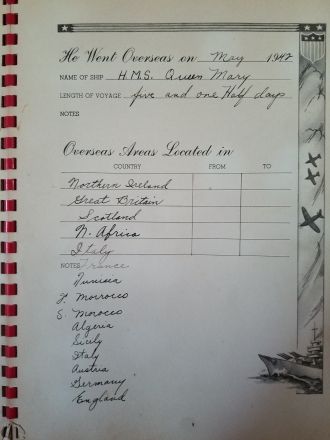 He Went Overseas on May 1942
NAME OF SHIP H.M.S. Queen Mary
LENGTH OF VOYAGE five and one Half days
NOTES
Overseas Areas Located in
COUNTRY FROM TO
Northern Ireland
Great Britain
Scotland
N. Africa
Italy
NOTES France
Tunisia
F. Morrocco
S. Morocco
Algeria
Sicily
Italy
Austria
Germany
England